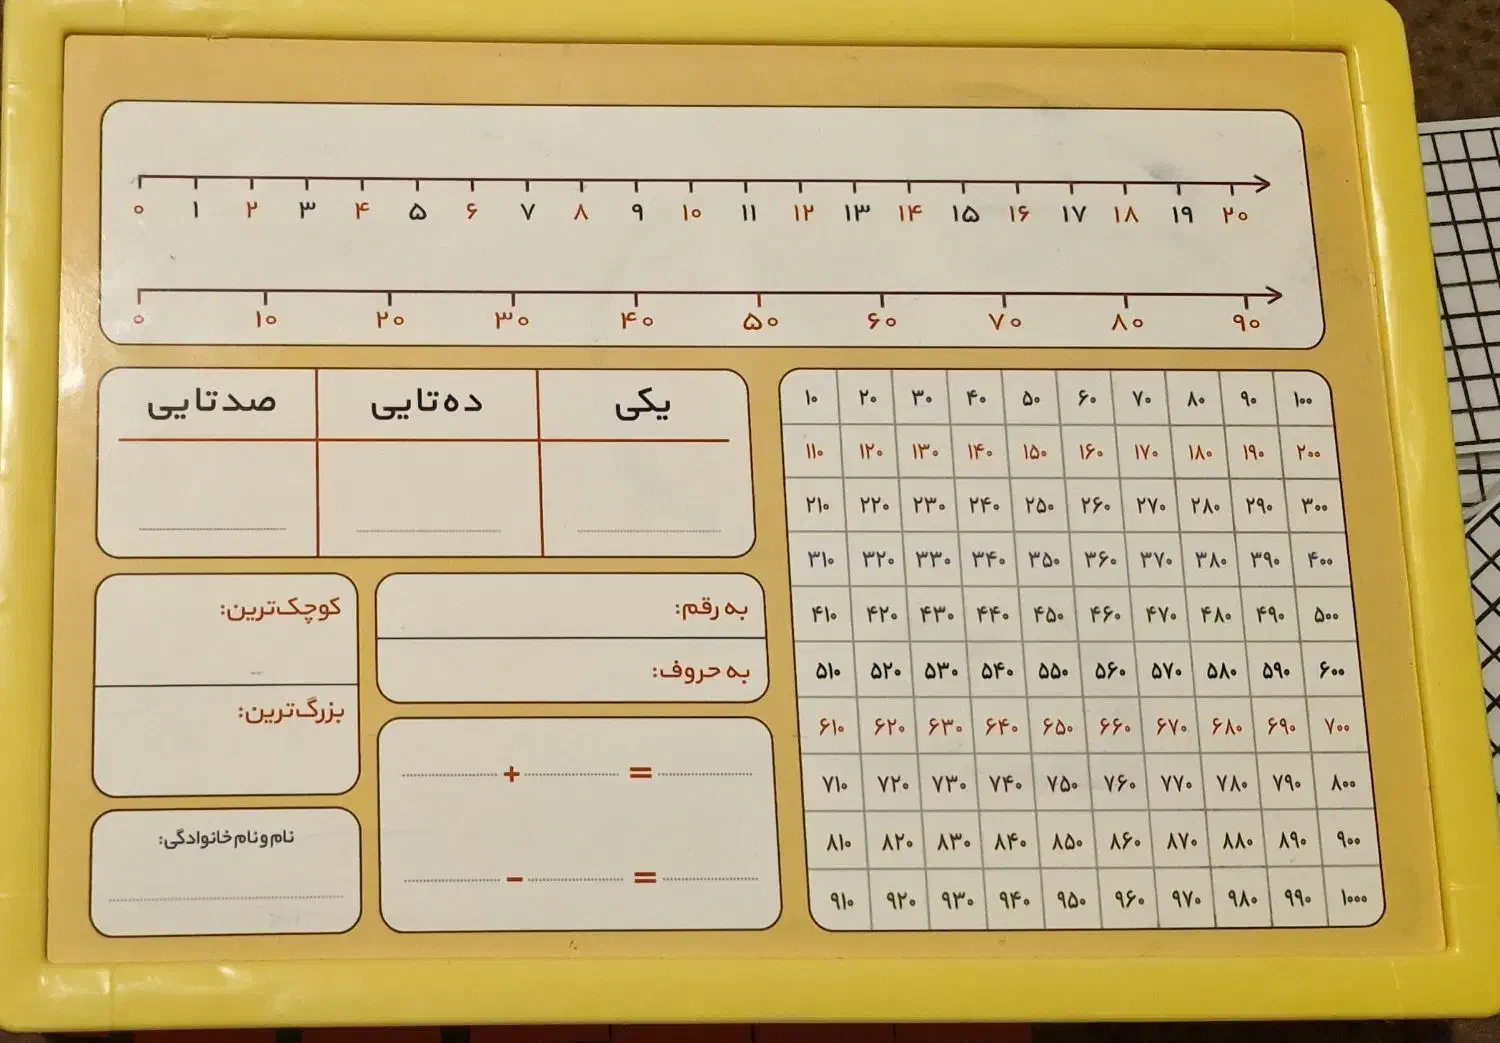 ۰ ۱ ۲ ۳ ۴ ۵ ۶ ۷ ۸ ۹ ۱۰ ۱۱ ۱۲ ۱۳ ۱۴ ۱۵ ۱۶ ۱۷ ۱۸ ۱۹ ۲۰
۰ ۱۰ ۲۰ ۳۰ ۴۰ ۵۰ ۶۰ ۷۰ ۸۰ ۹۰
صدتایی ده‌تایی یکی
کوچک‌ترین:
بزرگ‌ترین:
نام و نام خانوادگی:
به رقم:
به حروف:
+ =
- =
۱۰ ۲۰ ۳۰ ۴۰ ۵۰ ۶۰ ۷۰ ۸۰ ۹۰ ۱۰۰
۱۱۰ ۱۲۰ ۱۳۰ ۱۴۰ ۱۵۰ ۱۶۰ ۱۷۰ ۱۸۰ ۱۹۰ ۲۰۰
۲۱۰ ۲۲۰ ۲۳۰ ۲۴۰ ۲۵۰ ۲۶۰ ۲۷۰ ۲۸۰ ۲۹۰ ۳۰۰
۳۱۰ ۳۲۰ ۳۳۰ ۳۴۰ ۳۵۰ ۳۶۰ ۳۷۰ ۳۸۰ ۳۹۰ ۴۰۰
۴۱۰ ۴۲۰ ۴۳۰ ۴۴۰ ۴۵۰ ۴۶۰ ۴۷۰ ۴۸۰ ۴۹۰ ۵۰۰
۵۱۰ ۵۲۰ ۵۳۰ ۵۴۰ ۵۵۰ ۵۶۰ ۵۷۰ ۵۸۰ ۵۹۰ ۶۰۰
۶۱۰ ۶۲۰ ۶۳۰ ۶۴۰ ۶۵۰ ۶۶۰ ۶۷۰ ۶۸۰ ۶۹۰ ۷۰۰
۷۱۰ ۷۲۰ ۷۳۰ ۷۴۰ ۷۵۰ ۷۶۰ ۷۷۰ ۷۸۰ ۷۹۰ ۸۰۰
۸۱۰ ۸۲۰ ۸۳۰ ۸۴۰ ۸۵۰ ۸۶۰ ۸۷۰ ۸۸۰ ۸۹۰ ۹۰۰
۹۱۰ ۹۲۰ ۹۳۰ ۹۴۰ ۹۵۰ ۹۶۰ ۹۷۰ ۹۸۰ ۹۹۰ ۱۰۰۰